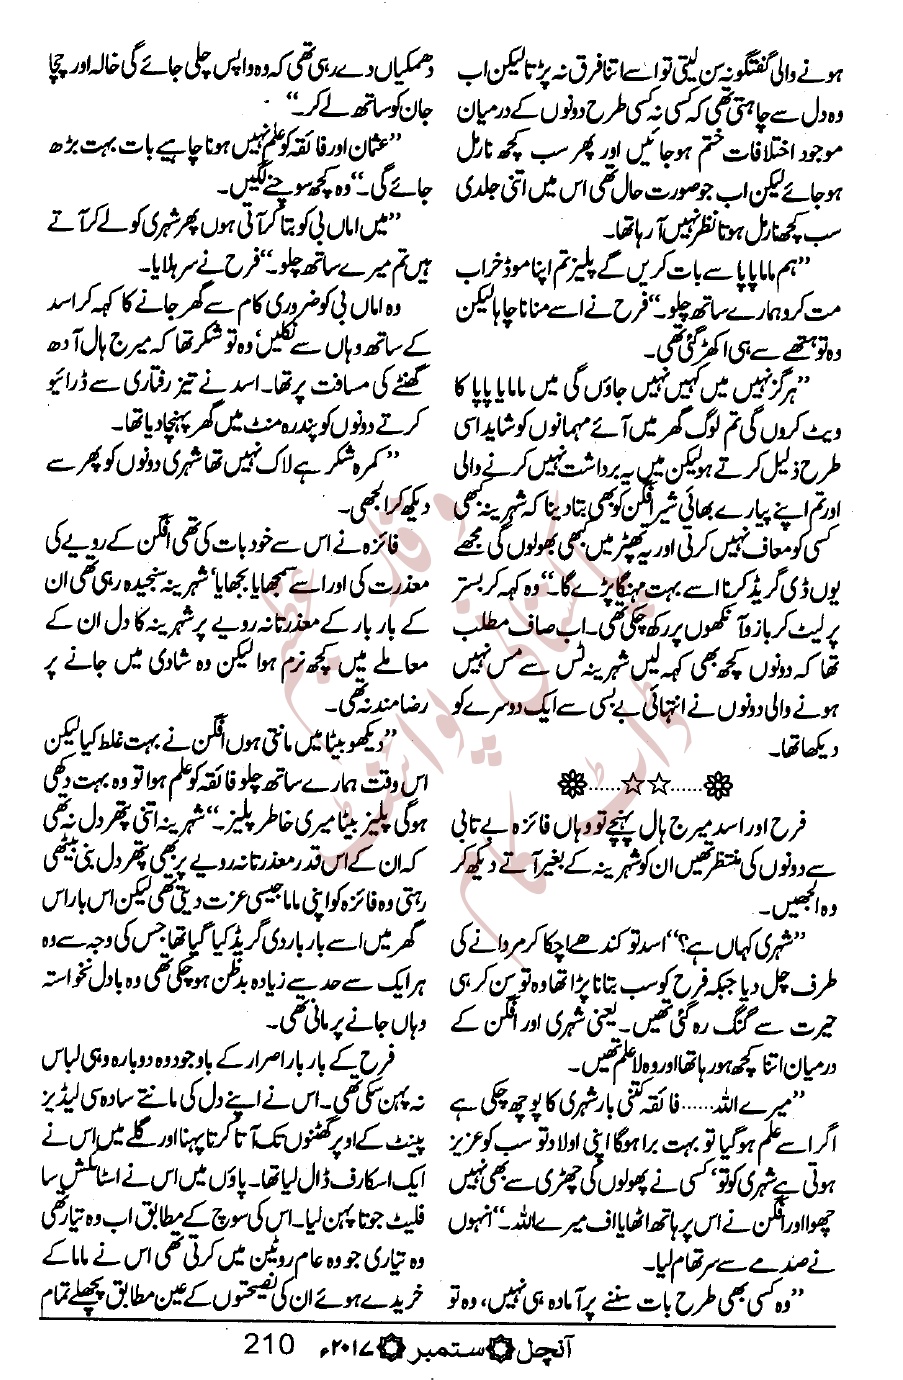 ہونے والی گفتگو نہ سن لیتی تو اسے اتنا فرق نہ پڑتا لیکن اب
وہ دل سے چاہتی تھی کہ کسی نہ کسی طرح دونوں کے درمیان
موجود اختلافات ختم ہو جائیں اور پھر سب کچھ نارمل
ہو جائے لیکن اب جو صورت حال تھی اس میں اتنی جلدی
سب کچھ نارمل ہوتا نظر نہیں آ رہا تھا۔
”ہم ماما پاپا سے بات کریں گے پلیز تم اپنا موڈ خراب
مت کرو ہمارے ساتھ چلو۔“ فرح نے اسے منانا چاہا لیکن
وہ تو ہتھے سے ہی اکھڑ گئی تھی۔
”ہرگز نہیں میں کہیں نہیں جاؤں گی میں ماما یا پاپا کا
ویٹ کروں گی تم لوگ گھر میں آئے مہمانوں کو شاید اسی
طرح ذلیل کرتے ہو لیکن میں یہ برداشت نہیں کرنے والی
اور تم اپنے پیارے بھائی شیر افگن کو بھی بتا دینا کہ شہرینہ کبھی
کسی کو معاف نہیں کرتی اور یہ تھپڑ میں کبھی بھولوں گی مجھے
یوں ڈی گریڈ کرنا اسے بہت مہنگا پڑے گا۔“ وہ کہہ کر بستر
پر لیٹ کر بازو آنکھوں پر رکھ چکی تھی۔ اب صاف مطلب
تھا کہ دونوں کچھ بھی کہہ لیں شہرینہ ٹس سے مس نہیں
ہونے والی دونوں نے انتہائی بے بسی سے ایک دوسرے کو
دیکھا تھا۔
❁......☆☆......❁
فرح اور اسد میرج ہال پہنچے تو وہاں فائزہ بے تابی
سے دونوں کی منتظر تھیں ان کو شہرینہ کے بغیر آتے دیکھ کر
وہ الجھیں۔
”شہری کہاں ہے؟“ اسد تو کندھے اچکا کر مردانے کی
طرف چل دیا جبکہ فرح کو سب بتانا پڑا تھا وہ تو سن کر ہی
حیرت سے گنگ رہ گئی تھیں۔ یعنی شہری اور افگن کے
درمیان اتنا کچھ ہو رہا تھا اور وہ لاعلم تھیں۔
”میرے اللہ...... فائقہ کتنی بار شہری کا پوچھ چکی ہے
اگر اسے علم ہو گیا تو بہت برا ہو گا اپنی اولاد تو سب کو عزیز
ہوتی ہے شہری کو تو کسی نے پھولوں کی چھڑی سے بھی نہیں
چھوا اور افگن نے اس پر ہاتھ اٹھایا اف میرے اللہ۔“ انہوں
نے صدمے سے سر تھام لیا۔
”وہ کسی بھی طرح بات سننے پر آمادہ ہی نہیں، وہ تو
دھمکیاں دے رہی تھی کہ وہ واپس چلی جائے گی خالہ اور چچا
جان کو ساتھ لے کر۔“
”عثمان اور فائقہ کو علم نہیں ہونا چاہیے بات بہت بڑھ
جائے گی۔“ وہ کچھ سوچنے لگیں۔
”میں اماں بی کو بتا کر آتی ہوں پھر شہری کو لے کر آتے
ہیں تم میرے ساتھ چلو۔“ فرح نے سر ہلایا۔
وہ اماں بی کو ضروری کام سے گھر جانے کا کہہ کر اسد
کے ساتھ وہاں سے نکلیں‘ وہ تو شکر تھا کہ میرج ہال آدھ
گھنٹے کی مسافت پر تھا۔ اسد نے تیز رفتاری سے ڈرائیو
کرتے دونوں کو پندرہ منٹ میں گھر پہنچا دیا تھا۔
”کمرہ شکر ہے لاک نہیں تھا شہری دونوں کو پھر سے
دیکھ کر الجھی۔
فائزہ نے اس سے خود بات کی تھی افگن کے رویے کی
معذرت کی اور اسے سمجھایا بجھایا‘ شہرینہ سنجیدہ رہی تھی ان
کے بار بار کے معذرتانہ رویے پر شہرینہ کا دل ان کے
معاملے میں کچھ نرم ہوا لیکن وہ شادی میں جانے پر
رضامند نہ تھی۔
”دیکھو بیٹا میں مانتی ہوں افگن نے بہت غلط کیا لیکن
اس وقت ہمارے ساتھ چلو فائقہ کو علم ہوا تو وہ بہت دکھی
ہو گی پلیز بیٹا میری خاطر پلیز۔“ شہرینہ اتنی پتھر دل نہ تھی
کہ ان کے اس قدر معذرتانہ رویے پر بھی پتھر دل بنی بیٹھی
رہتی وہ فائزہ کو اپنی ماما جیسی عزت دیتی تھی لیکن اس بار اس
گھر میں اسے بار بار ڈی گریڈ کیا گیا تھا جس کی وجہ سے وہ
ہر ایک سے حد سے زیادہ بدظن ہو چکی تھی وہ بادل نخواستہ
وہاں جانے پر مانی تھی۔
فرح کے بار بار اصرار کے باوجود وہ دوبارہ وہی لباس
نہ پہن سکی تھی۔ اس نے اپنے دل کی مانتے سادہ سی لیڈیز
پینٹ کے اوپر گھٹنوں تک آتا کرتا پہنا اور گلے میں اس نے
ایک اسکارف ڈال لیا تھا۔ پاؤں میں اس نے اسٹائلش سا
فلیٹ جوتا پہن لیا۔ اس کی سوچ کے مطابق اب وہ تیار تھی
وہ تیاری جو وہ عام روٹین میں کرتی تھی اس نے ماما کے
خریدے ہوئے ان کی نصیحتوں کے عین مطابق پچھلے تمام
آنچل ۞ ستمبر ۞ ۲۰۱۷ء 210
پاکستانی پوائنٹ
ڈاٹ کام